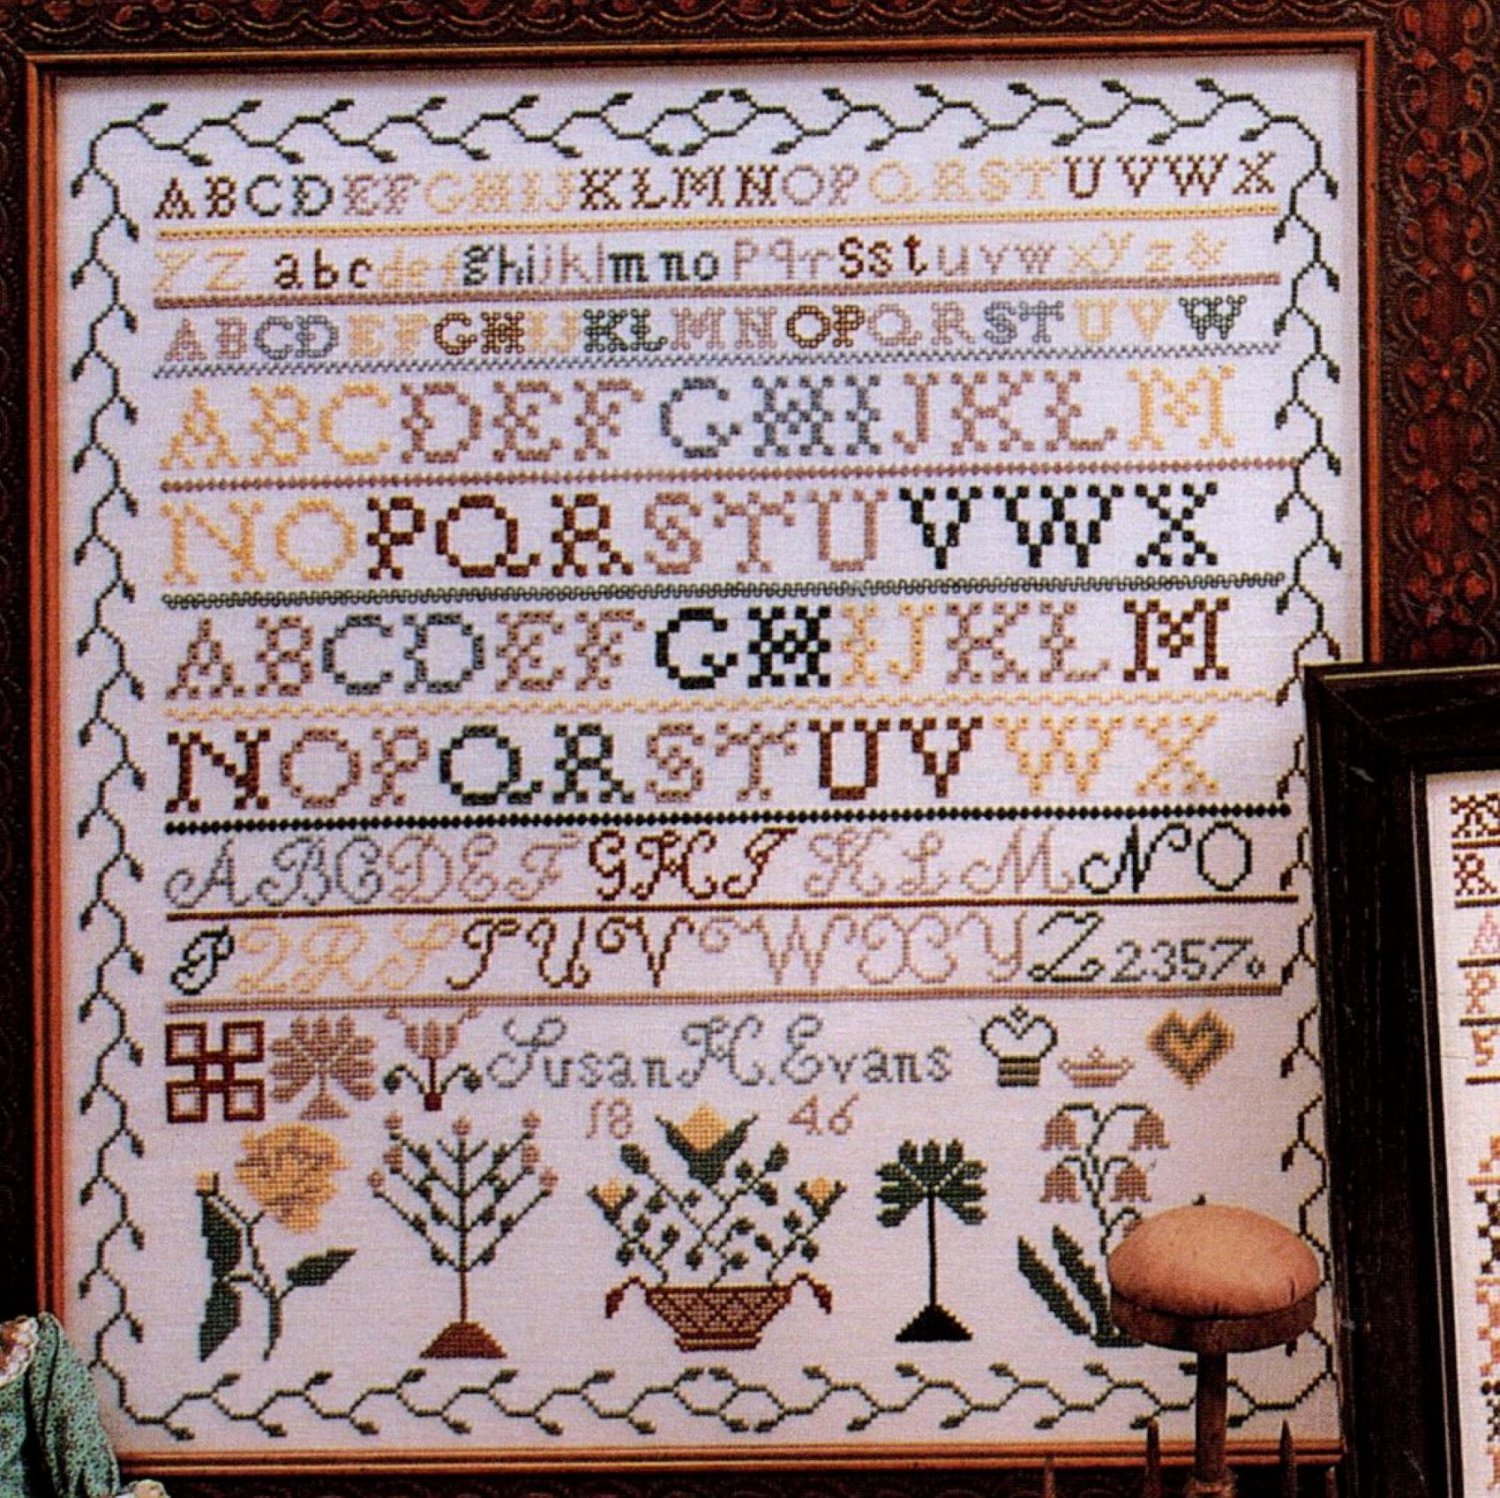 ABCDEFGHIJKLMNOPQRSTUVWX
ZZ abcdefghijklmnopqrSstuvwxyz&
ABCDEFGHIJKLMNOPQRSTUVW
ABCDEFGHIJKLM
NOPQRSTUVWX
ABCDEFGHIJKLM
NOPQRSTUVWX
ABCDEFGHIKLMNO
PQRSTUVWXYZ23570
Susan H. Evans
1846